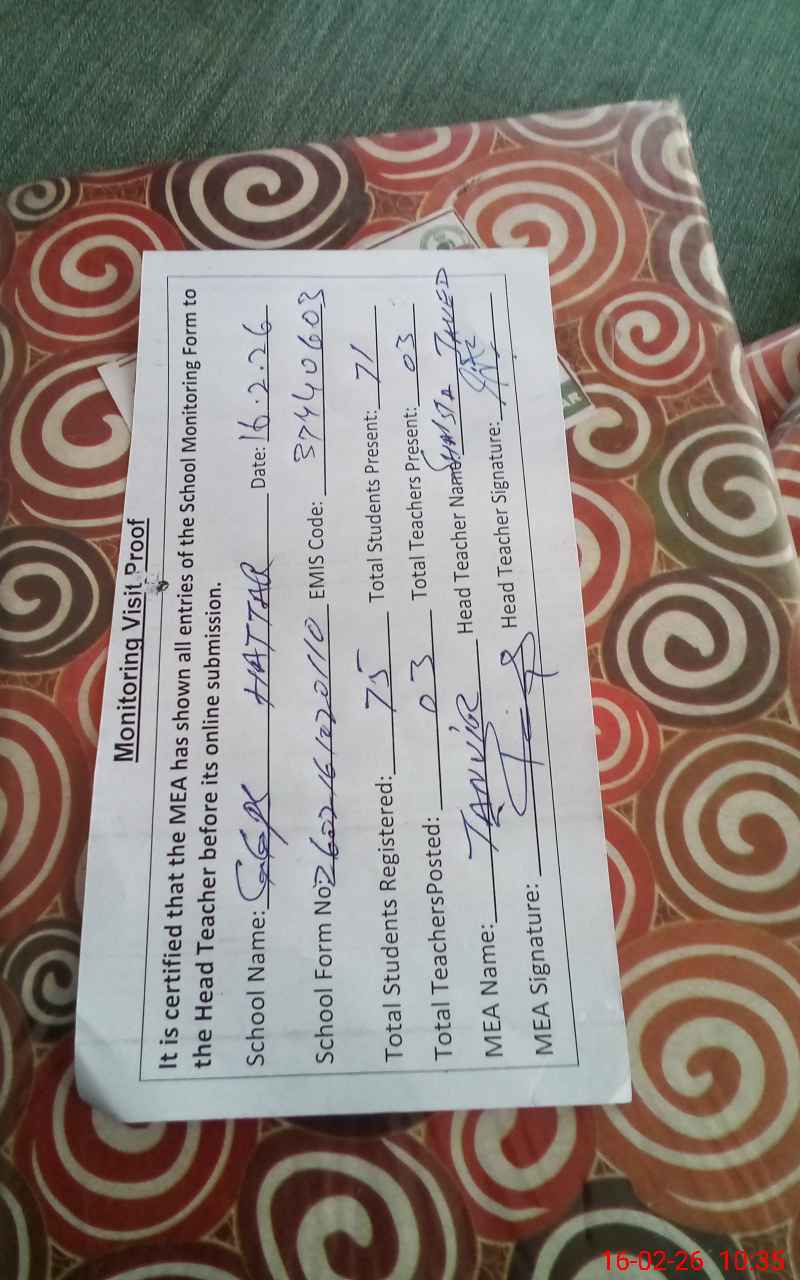 Monitoring Visit Proof
It is certified that the MEA has shown all entries of the School Monitoring Form to
the Head Teacher before its online submission.
School Name: GGPS HATTAR Date: 16.2.26
School Form No: EMIS Code: 37440603
Total Students Registered: 75 Total Students Present: 71
Total TeachersPosted: 03 Total Teachers Present: 03
MEA Name: TANVIR Head Teacher Name:
MEA Signature: Head Teacher Signature:
AR
16-02-26 10:35